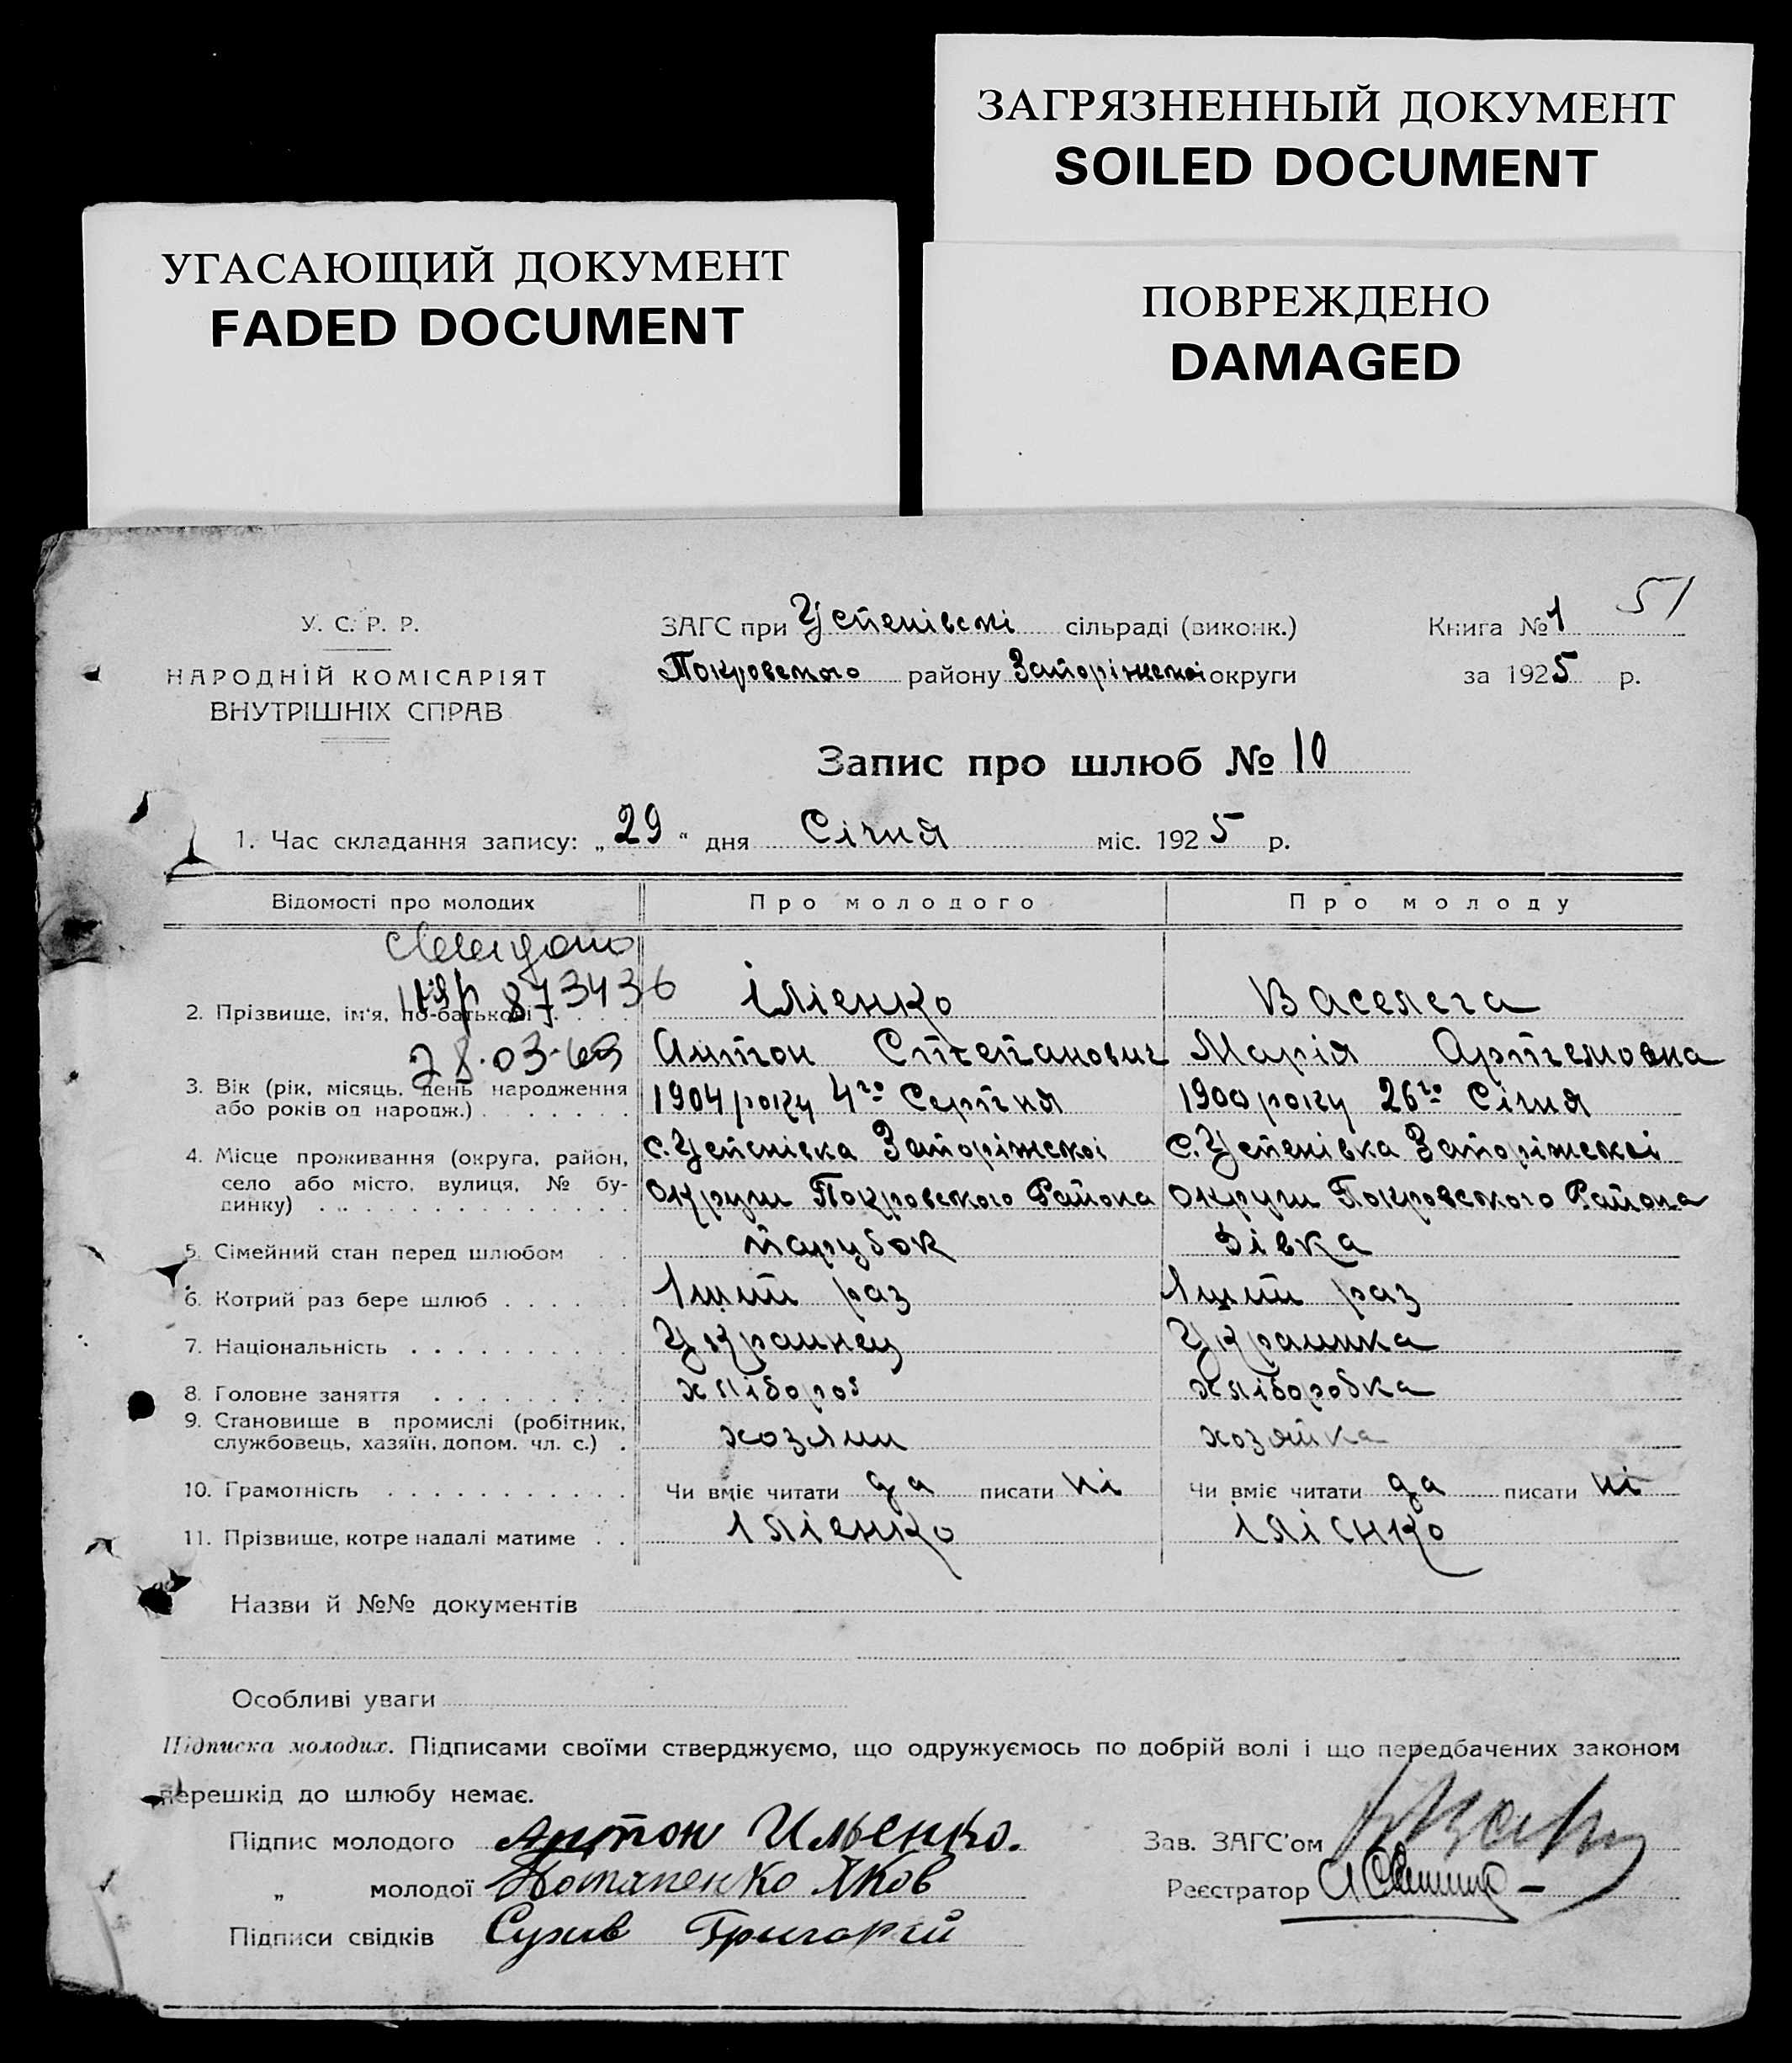 ЗАГРЯЗНЕННЫЙ ДОКУМЕНТ
SOILED DOCUMENT
УГАСАЮЩИЙ ДОКУМЕНТ
FADED DOCUMENT
ПОВРЕЖДЕНО
DAMAGED
51
У. С. Р. Р.
НАРОДНІЙ КОМІСАРІЯТ
ВНУТРІШНІХ СПРАВ
ЗАГС при Успенівскі сільраді (виконк.)
Покровского району Запоріжскоі округи
Книга № 1
за 1925 р.
Запис про шлюб № 10
1. Час складання запису: „29“ дня Січня міс. 1925 р.
Відомості про молодих Про молодого Про молоду
873436
28.03.
2. Прізвище, ім'я, по-батькові Іліенко Васелега
Антон Стпепанович Марія Артемовна
3. Вік (рік, місяць, день народження або років од народж.) 1904 року 4го Серпня 1900 року 26го Січня
4. Місце проживання (округа, район, село або місто, вулиця, № будинку) с. Успенівка Запоріжскоі с. Успенівка Запоріжскоі
округи Покровского Района округи Покровского Района
5. Сімейний стан перед шлюбом парубок дівка
6. Котрий раз бере шлюб 1ший раз 1ший раз
7. Національність Украинец Украинка
8. Головне заняття хлібороб хліборобка
9. Становище в промислі (робітник, службовець, хазяїн, допом. чл. с.) хозяин хозяйка
10. Грамотність Чи вміє читати да писати ні Чи вміє читати да писати ні
11. Прізвище, котре надалі матиме Іліенко Іліенко
Назви й №№ документів
Особливі уваги
Підписка молодих. Підписами своїми стверджуємо, що одружуємось по добрій волі і що передбачених законом
перешкід до шлюбу немає.
Підпис молодого Антон Ильенко. Зав. ЗАГС'ом
„ молодої Потапенко Яков Реєстратор
Підписи свідків Сухив Григорий